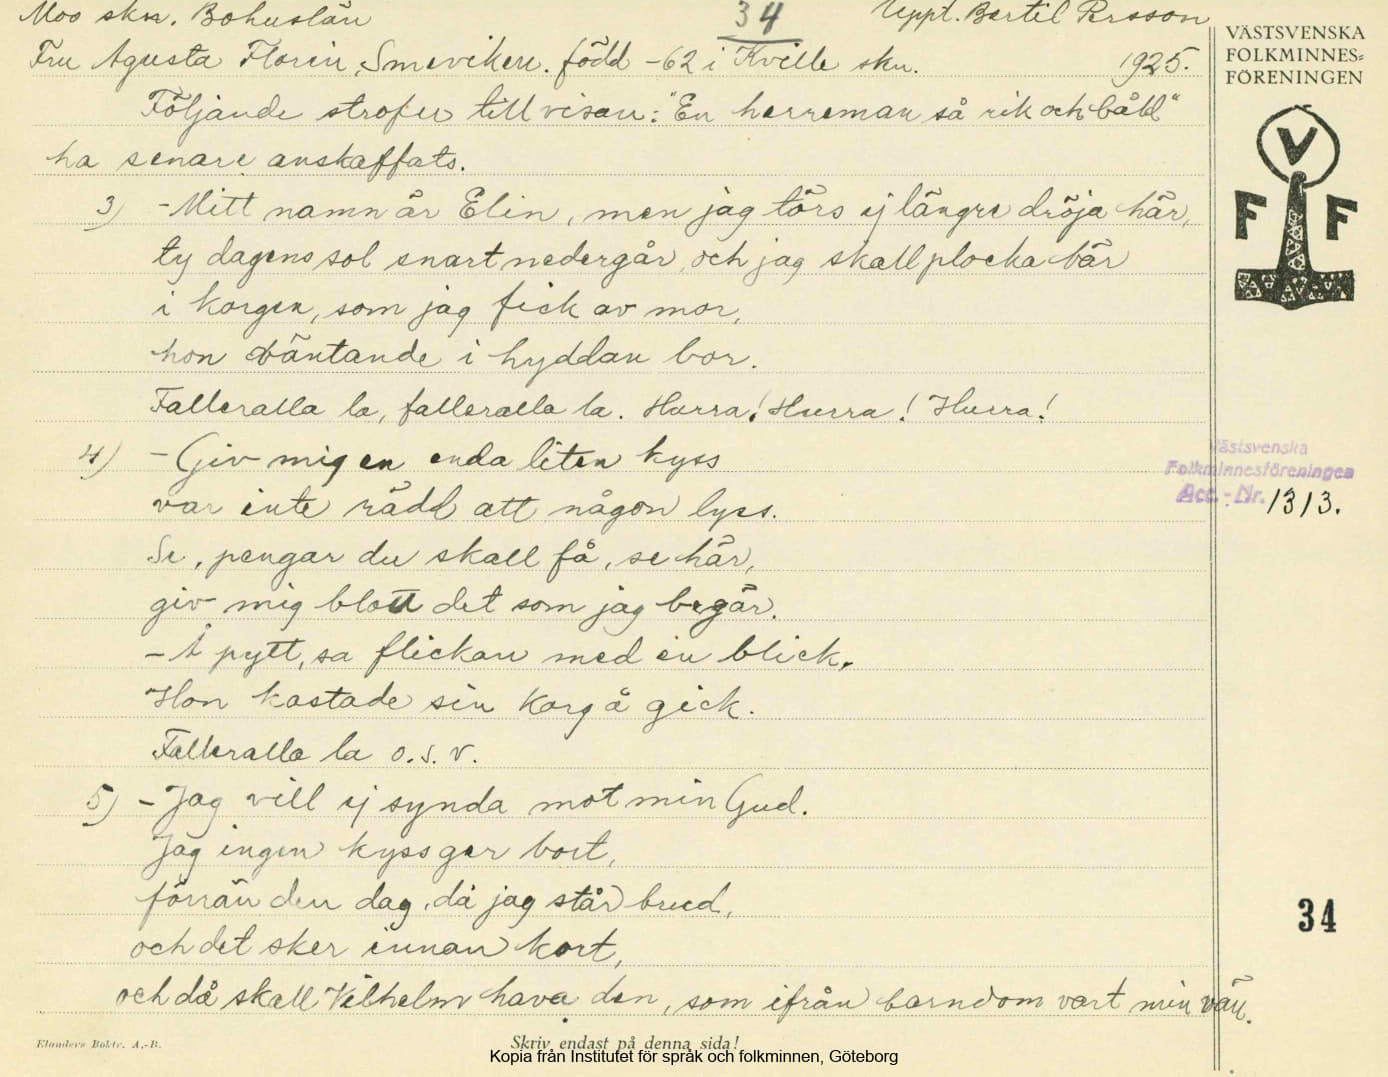 Moo skn. Bohuslän
34
Uppt. Bertil Persson
Fru Agusta Florin, Smeviken. född -62 i Kville skn.
1925.
VÄSTSVENSKA
FOLKMINNES=
FÖRENINGEN
V
F F
Följande strofer till visan: "En herreman så rik och båld"
ha senare anskaffats.
3) - Mitt namn är Elin, men jag törs ej längre dröja här,
ty dagens sol snart nedergår, och jag skall plocka bär
i korgen, som jag fick av mor,
hon väntande i hyddan bor.
Falleralla la, falleralla la. Hurra! Hurra! Hurra!
4) - Giv mig en enda liten kyss
var inte rädd att någon lyss.
Se, pengar du skall få, se här,
giv mig blott det som jag begär.
- Å pytt, sa flickan med en blick.
Hon kastade sin korg å gick.
Falleralla la o.s.v.
5) - Jag vill ej synda mot min Gud.
Jag ingen kyss ger bort,
förrän den dag, då jag står brud,
och det sker innan kort,
och då skall Vilhelm hava den, som ifrån barndom vart min vän.
Västsvenska
Folkminnesföreningen
Acc. - Nr. 1313.
34
Elanders Boktr. A.-B.
Skriv endast på denna sida!
Kopia från Institutet för språk och folkminnen, Göteborg